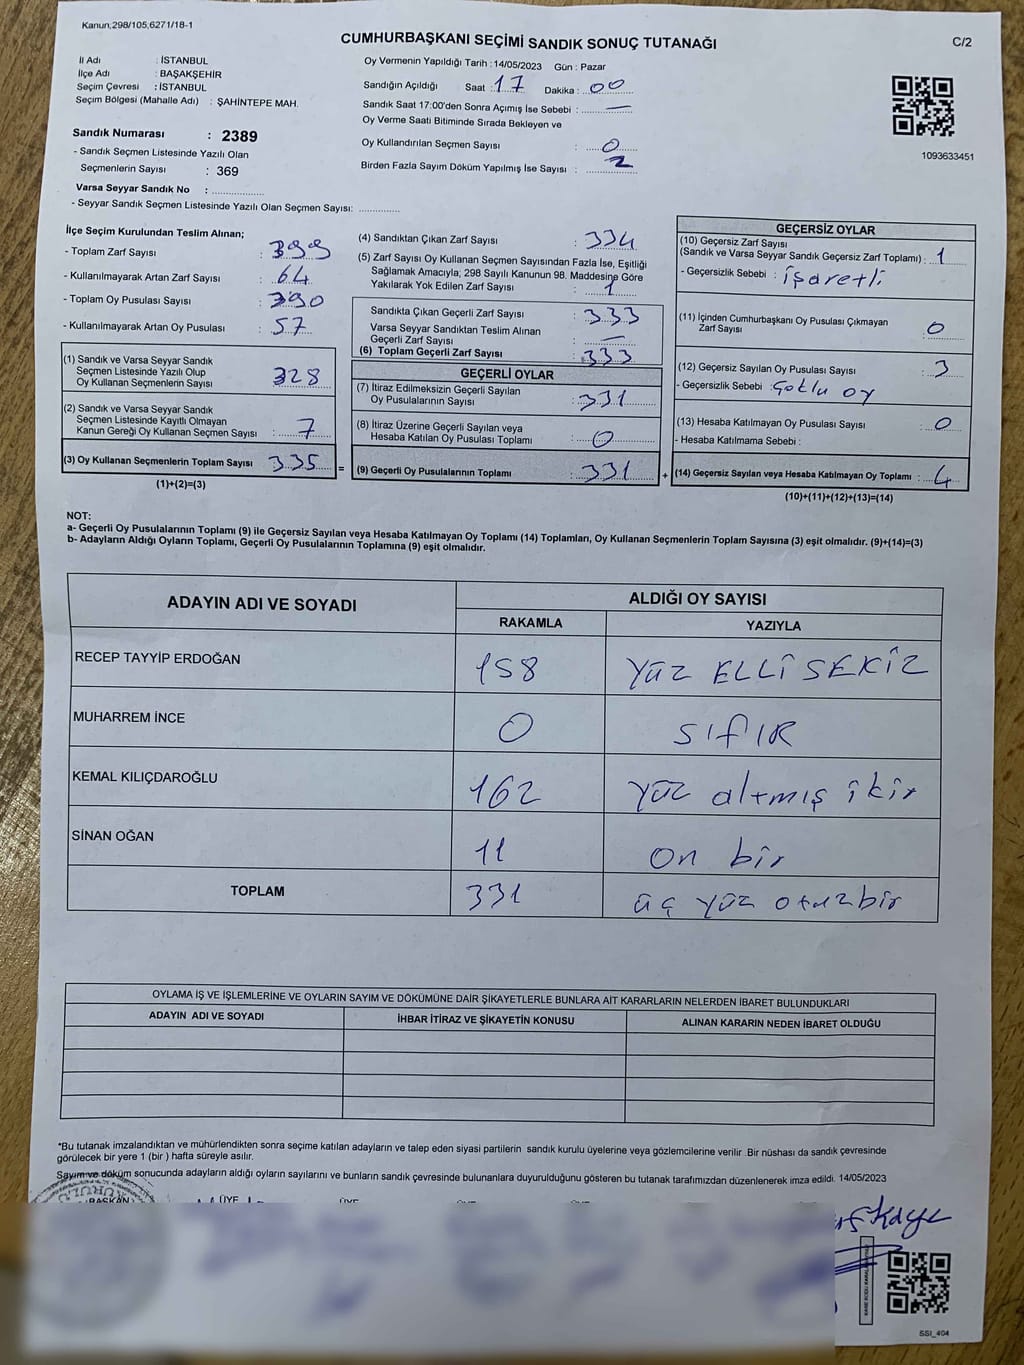 Kanun;298/105,6271/18-1
C/2
CUMHURBAŞKANI SEÇİMİ SANDIK SONUÇ TUTANAĞI
İl Adı : İSTANBUL
İlçe Adı : BAŞAKŞEHİR
Seçim Çevresi : İSTANBUL
Seçim Bölgesi (Mahalle Adı) : ŞAHİNTEPE MAH.
Sandık Numarası : 2389
- Sandık Seçmen Listesinde Yazılı Olan
Seçmenlerin Sayısı : 369
Varsa Seyyar Sandık No : ..............
- Seyyar Sandık Seçmen Listesinde Yazılı Olan Seçmen Sayısı: ............
Oy Vermenin Yapıldığı Tarih : 14/05/2023 Gün : Pazar
Sandığın Açıldığı Saat : 17 Dakika : 00
Sandık Saat 17:00'den Sonra Açımış İse Sebebi : —
Oy Verme Saati Bitiminde Sırada Bekleyen ve
Oy Kullandırılan Seçmen Sayısı : 0
Birden Fazla Sayım Döküm Yapılmış İse Sayısı : 2
1093633451
İlçe Seçim Kurulundan Teslim Alınan;
- Toplam Zarf Sayısı : 399
- Kullanılmayarak Artan Zarf Sayısı : 64
- Toplam Oy Pusulası Sayısı : 390
- Kullanılmayarak Artan Oy Pusulası : 57
(1) Sandık ve Varsa Seyyar Sandık
Seçmen Listesinde Yazılı Olup
Oy Kullanan Seçmenlerin Sayısı : 328
(2) Sandık ve Varsa Seyyar Sandık
Seçmen Listesinde Kayıtlı Olmayan
Kanun Gereği Oy Kullanan Seçmen Sayısı : 7
(3) Oy Kullanan Seçmenlerin Toplam Sayısı : 335 =
(1)+(2)=(3)
(4) Sandıktan Çıkan Zarf Sayısı : 334
(5) Zarf Sayısı Oy Kullanan Seçmen Sayısından Fazla İse, Eşitliği
Sağlamak Amacıyla; 298 Sayılı Kanunun 98. Maddesine Göre
Yakılarak Yok Edilen Zarf Sayısı : 1
Sandıkta Çıkan Geçerli Zarf Sayısı : 333
Varsa Seyyar Sandıktan Teslim Alınan
Geçerli Zarf Sayısı : —
(6) Toplam Geçerli Zarf Sayısı : 333
GEÇERLİ OYLAR
(7) İtiraz Edilmeksizin Geçerli Sayılan
Oy Pusulalarının Sayısı : 331
(8) İtiraz Üzerine Geçerli Sayılan veya
Hesaba Katılan Oy Pusulası Toplamı : 0
(9) Geçerli Oy Pusulalarının Toplamı : 331 +
GEÇERSİZ OYLAR
(10) Geçersiz Zarf Sayısı
(Sandık ve Varsa Seyyar Sandık Geçersiz Zarf Toplamı) : 1
- Geçersizlik Sebebi : işaretli
(11) İçinden Cumhurbaşkanı Oy Pusulası Çıkmayan
Zarf Sayısı : 0
(12) Geçersiz Sayılan Oy Pusulası Sayısı : 3
- Geçersizlik Sebebi : Çoklu oy
(13) Hesaba Katılmayan Oy Pusulası Sayısı : 0
- Hesaba Katılmama Sebebi :
(14) Geçersiz Sayılan veya Hesaba Katılmayan Oy Toplamı : 4
(10)+(11)+(12)+(13)=(14)
NOT:
a- Geçerli Oy Pusulalarının Toplamı (9) ile Geçersiz Sayılan veya Hesaba Katılmayan Oy Toplamı (14) Toplamları, Oy Kullanan Seçmenlerin Toplam Sayısına (3) eşit olmalıdır. (9)+(14)=(3)
b- Adayların Aldığı Oyların Toplamı, Geçerli Oy Pusulalarının Toplamına (9) eşit olmalıdır.
ADAYIN ADI VE SOYADI ALDIĞI OY SAYISI
RAKAMLA YAZIYLA
RECEP TAYYİP ERDOĞAN 158 YÜZ ELLİ SEKİZ
MUHARREM İNCE 0 SIFIR
KEMAL KILIÇDAROĞLU 162 yüz altmış iki
SİNAN OĞAN 11 on bir
TOPLAM 331 üç yüz otuzbir
OYLAMA İŞ VE İŞLEMLERİNE VE OYLARIN SAYIM VE DÖKÜMÜNE DAİR ŞİKAYETLERLE BUNLARA AİT KARARLARIN NELERDEN İBARET BULUNDUKLARI
ADAYIN ADI VE SOYADI İHBAR İTİRAZ VE ŞİKAYETİN KONUSU ALINAN KARARIN NEDEN İBARET OLDUĞU
*Bu tutanak imzalandıktan ve mühürlendikten sonra seçime katılan adayların ve talep eden siyasi partilerin sandık kurulu üyelerine veya gözlemcilerine verilir .Bir nüshası da sandık çevresinde
görülecek bir yere 1 (bir ) hafta süreyle asılır.
Sayım ve döküm sonucunda adayların aldığı oyların sayılarını ve bunların sandık çevresinde bulunanlara duyurulduğunu gösteren bu tutanak tarafımızdan düzenlenerek imza edildi. 14/05/2023
BAŞKAN ÜYE ÜYE
SSI_404